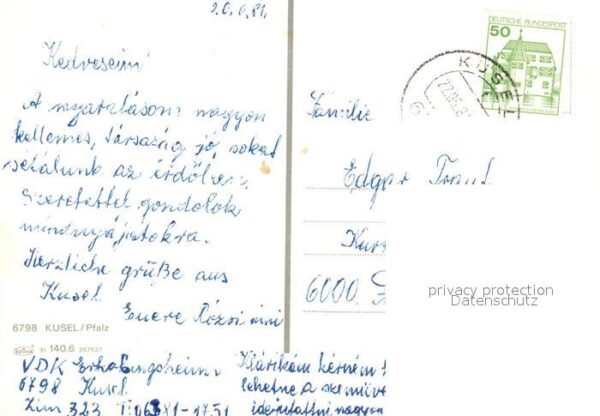 20.6.81.
Kedveseim!
A nyaralásom nagyon
kellemes, társaság jó, sokat
sétálunk az erdőben.
Szeretettel gondolok
mindnyájatokra.
Herzliche grüße aus
Kusel
Euere Rózsi néni
6798 KUSEL/Pfalz
31 140.6
VDK Erholungsheim
6798 Kusel
Zim 323 T:
Klárikám kérném
lehetne a szemüve
nagyon
50
DEUTSCHE BUNDESPOST
KUSEL
Familie
Edgar
6000
privacy protection
Datenschutz